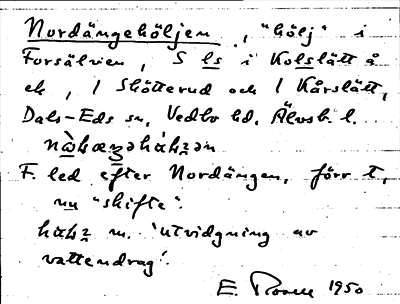 Nordängehöljen, "hölj" i
Forsälven, S ls i Kolslätt å
ek, 1 Skötterud och 1 Kårslätt,
Dals-Eds sn, Vedbo hd, Älvsb. l.
F. led efter Nordängen, förr t,
nu "skifte".
m. 'utvidgning av
vattendrag'.
E. 1950